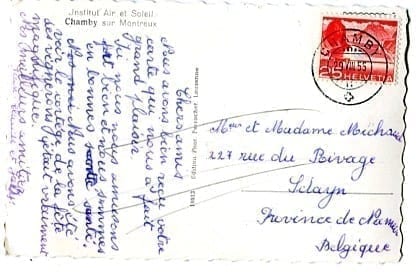 Institut Air et Soleil
Chamby sur Montreux
Chers amis
Nous avons bien reçu votre
carte qui nous a fait
grand plaisir
Ici nous nous amusons
bien et nous sommes
en bonnes santé.
Nous avons été
voir le cortège de la fête
des vignerons, c'était vraiment
magnifique.
Meilleurs amitiés
Edition Phot. Perrochet, Lausanne
CHAMBY
25 HELVETIA
et Madame Michaux
227 rue du Rivage
Sclayn
Province de Namur
Belgique